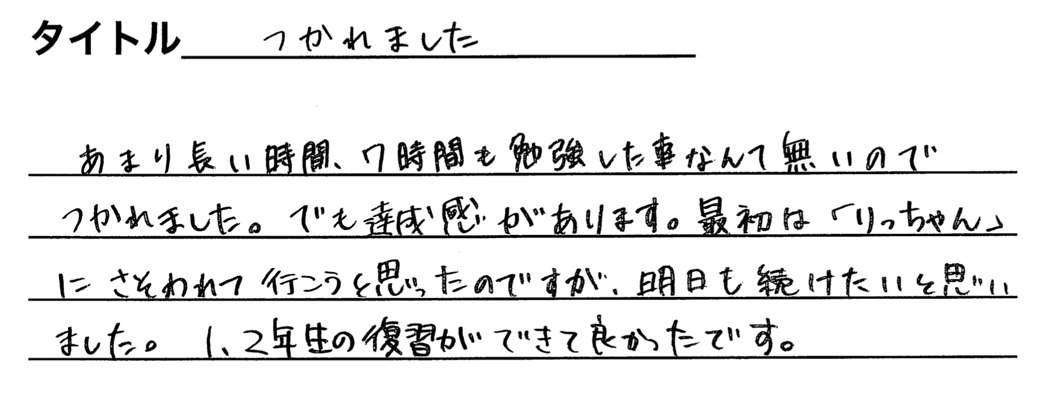 タイトル つかれました
あまり長い時間、7時間も勉強した事なんて無いので
つかれました。でも達成感があります。最初は「りっちゃん」
にさそわれて行こうと思ったのですが、明日も続けたいと思い
ました。1、2年生の復習ができて良かったです。